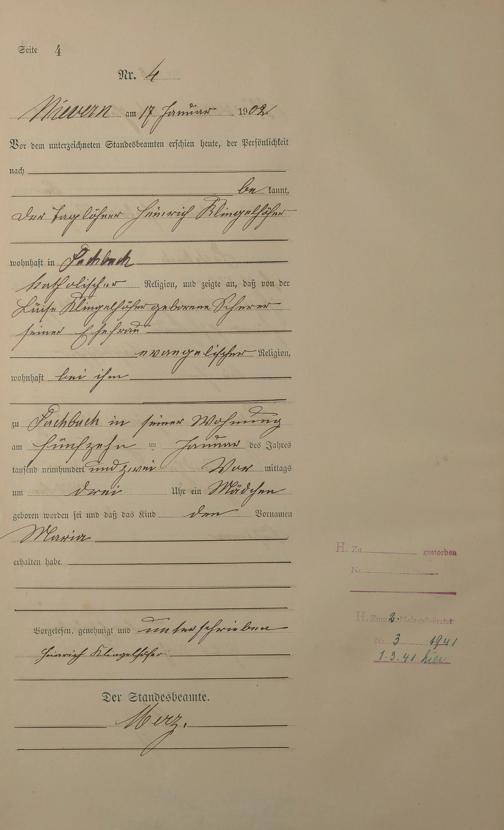 Seite 4
Nr. 4
Nievern am 17 Januar 1902
Vor dem unterzeichneten Standesbeamten erschien heute, der Persönlichkeit
nach
be kannt,
der Taglöhner Heinrich Klingelhöfer
wohnhaft in Fachbach
katholischer Religion, und zeigte an, daß von der
Luise Klingelhöfer geborene Scherer
seiner Ehefrau
evangelischer Religion,
wohnhaft bei ihm
zu Fachbach in seiner Wohnung
am fünfzehn Januar des Jahres
tausend neunhundert und zwei Vor mittags
um drei Uhr ein Mädchen
geboren worden sei und daß das Kind den Vornamen
Maria
erhalten habe.
Vorgelesen, genehmigt und unterschrieben
Heinrich Klingelhöfer
Der Standesbeamte.
Merz.
H. Zu gestorben
Nr.
H. 2
Nr. 3 1941
1.3.41 hier